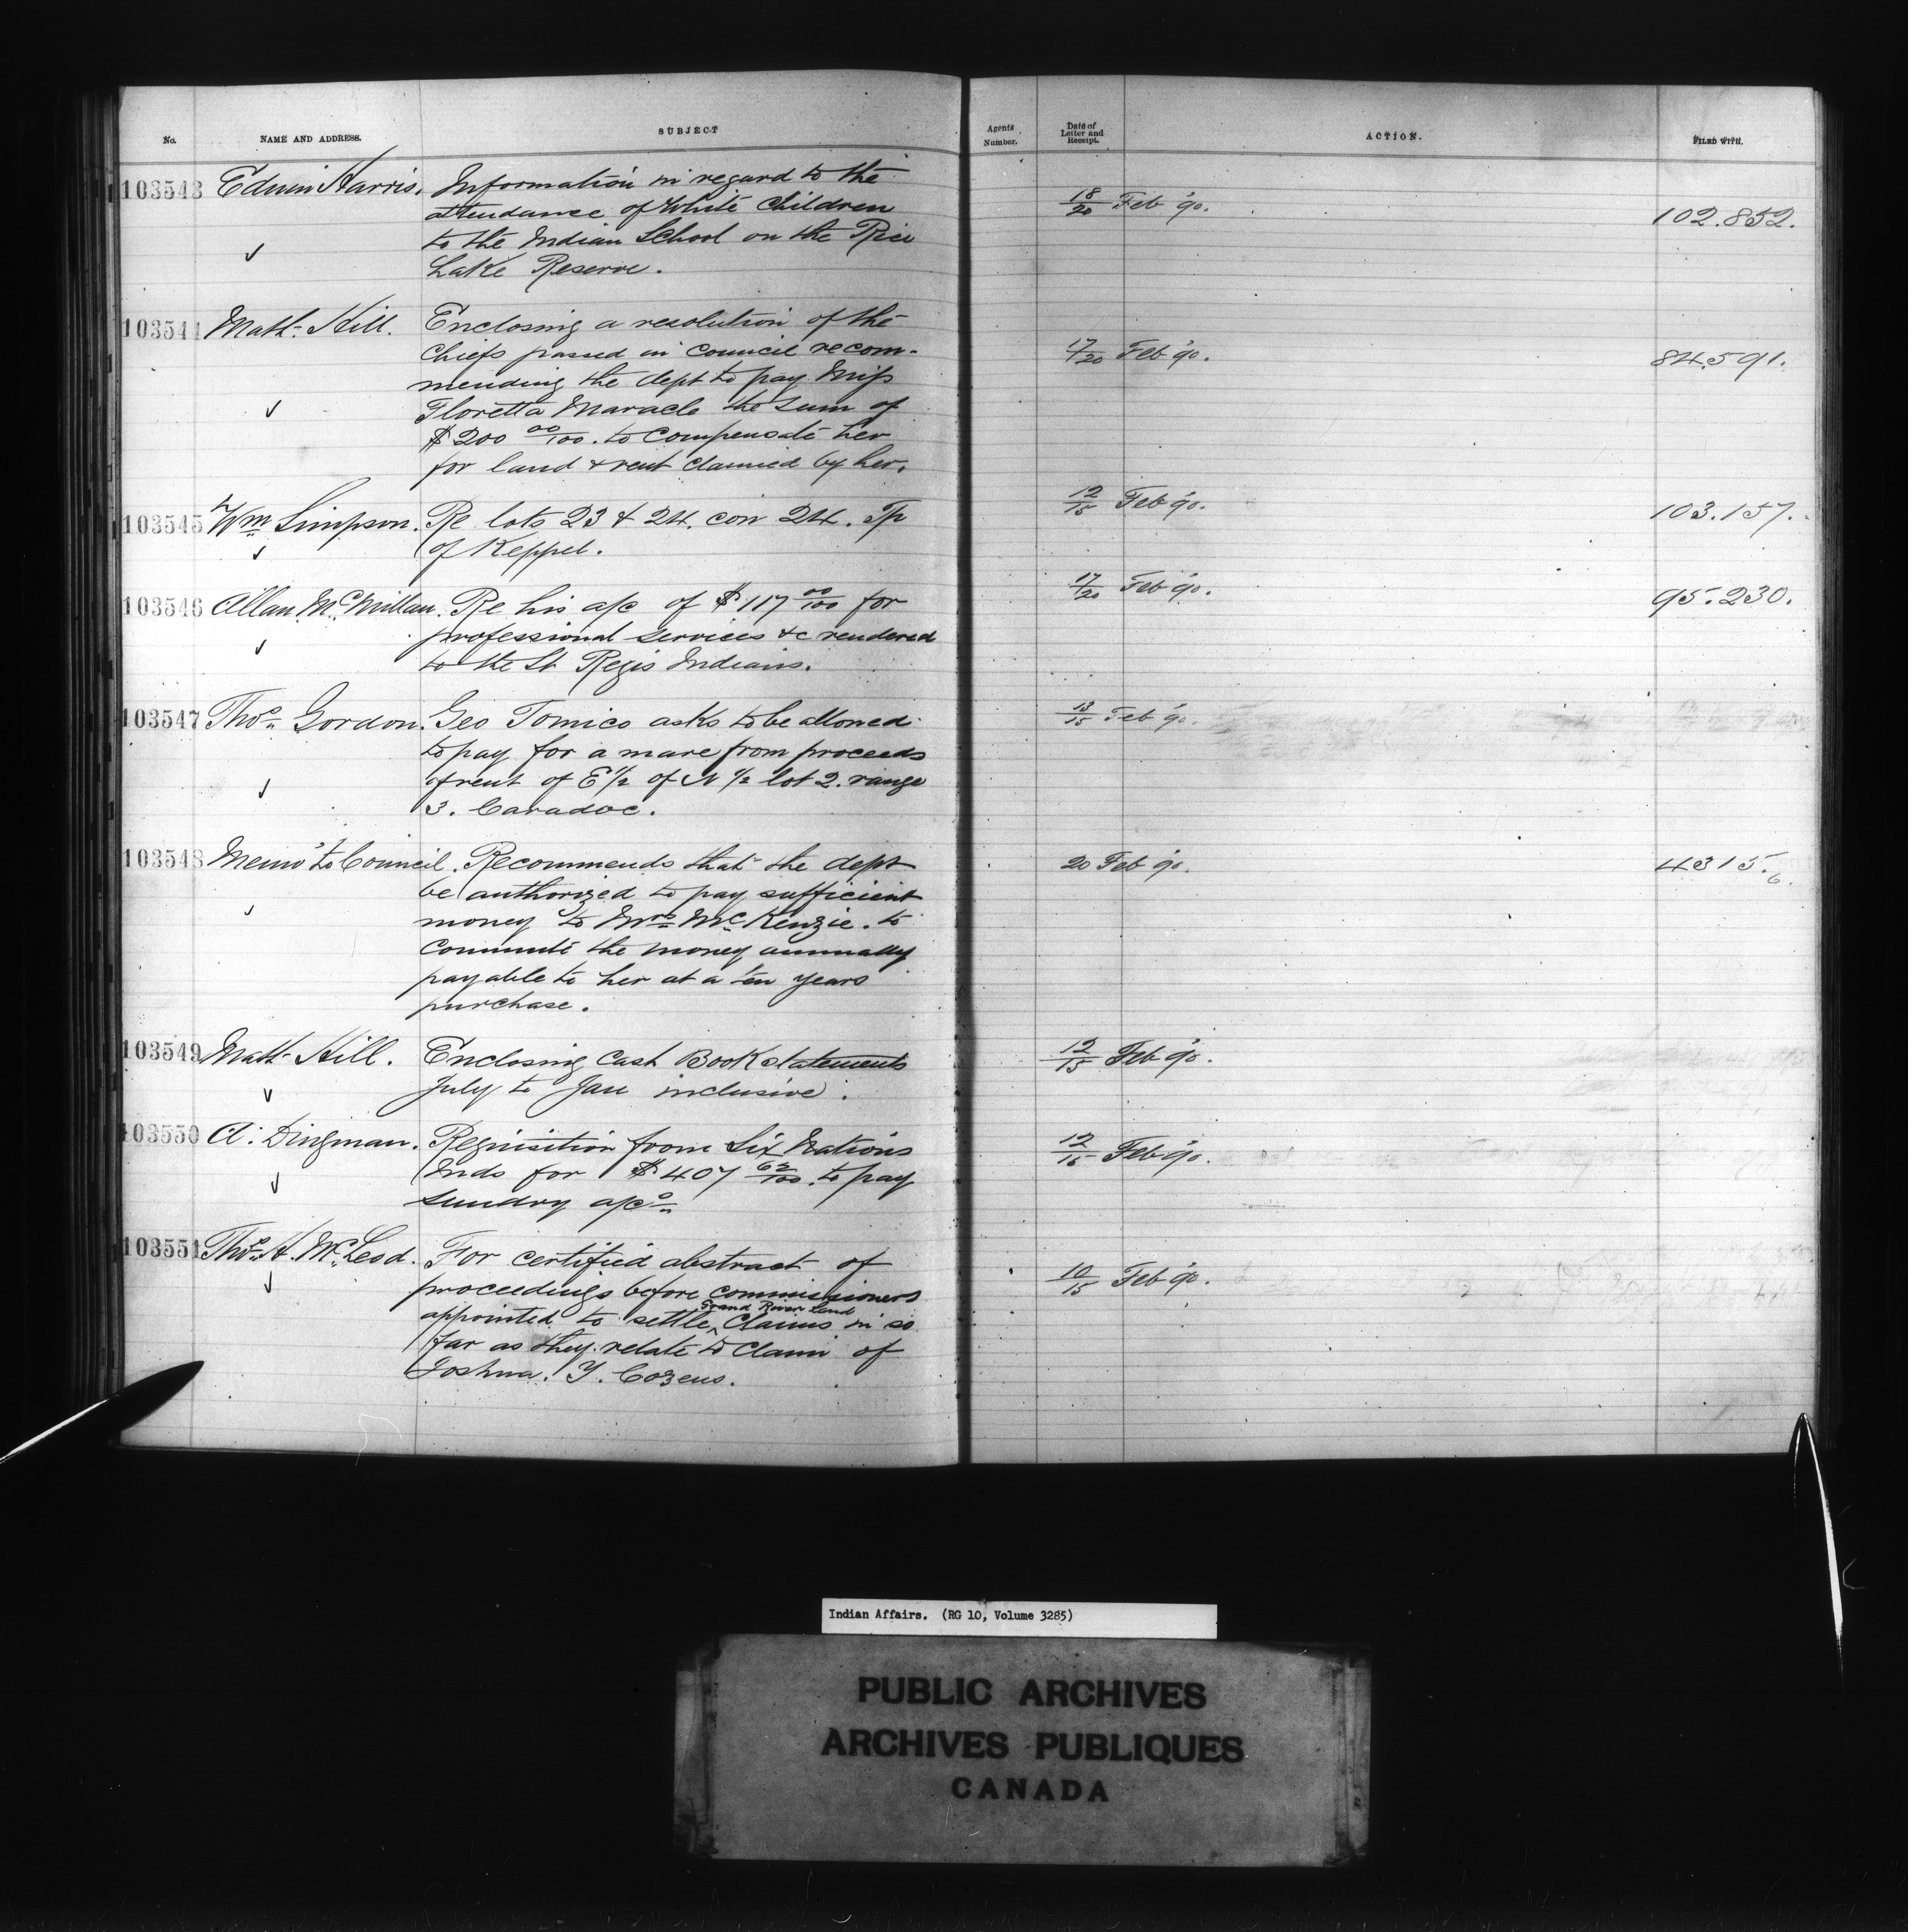 No. NAME AND ADDRESS. SUBJECT Agents Number. Date of Letter and Receipt. ACTION. FILED WITH.
103543 Edwin Harris. Information in regard to the 18/20 Feb '90. 102.852.
attendance of White Children
to the Indian School on the Rice
Lake Reserve.
103544 Matt. Hill. Enclosing a resolution of the 17/20 Feb '90. 84.591.
Chiefs passed in council recom-
mending the dept to pay Miss
Floretta Maracle the sum of
$200 00/100. to compensate her
for land & rent claimed by her.
103545 Wm Simpson. Re lots 23 & 24. con 24. Tp 12/15 Feb '90. 103.157.
of Keppel.
103546 Allan McMillan. Re his a/c of $117 00/100 for 17/20 Feb '90. 95.230.
professional services &c rendered
to the St Regis Indians.
103547 Thos Gordon. Geo Tomico asks to be allowed 13/15 Feb '90.
to pay for a mare from proceeds
of rent of E 1/2 of N 1/2 lot 2. range
3. Caradoc.
103548 Memo to Council. Recommends that the dept 20 Feb '90. 4315.6.
be authorized to pay sufficient
money to Mrs McKenzie. to
commute the money annually
payable to her at a ten years
purchase.
103549 Matt Hill. Enclosing Cash Book statements 12/15 Feb '90.
July to Jan inclusive.
103550 A. Dingman. Requisition from Six Nations 12/15 Feb '90.
Inds for $407 62/100. to pay
sundry a/cs
103551 Thos A. McLeod. For certified abstract of 10/15 Feb '90.
proceedings before commissioners
appointed to settle Grand River Land Claims in so
far as they relate to claim of
Joshua. Y. Cozens.
Indian Affairs. (RG 10, Volume 3285)
PUBLIC ARCHIVES
ARCHIVES PUBLIQUES
CANADA